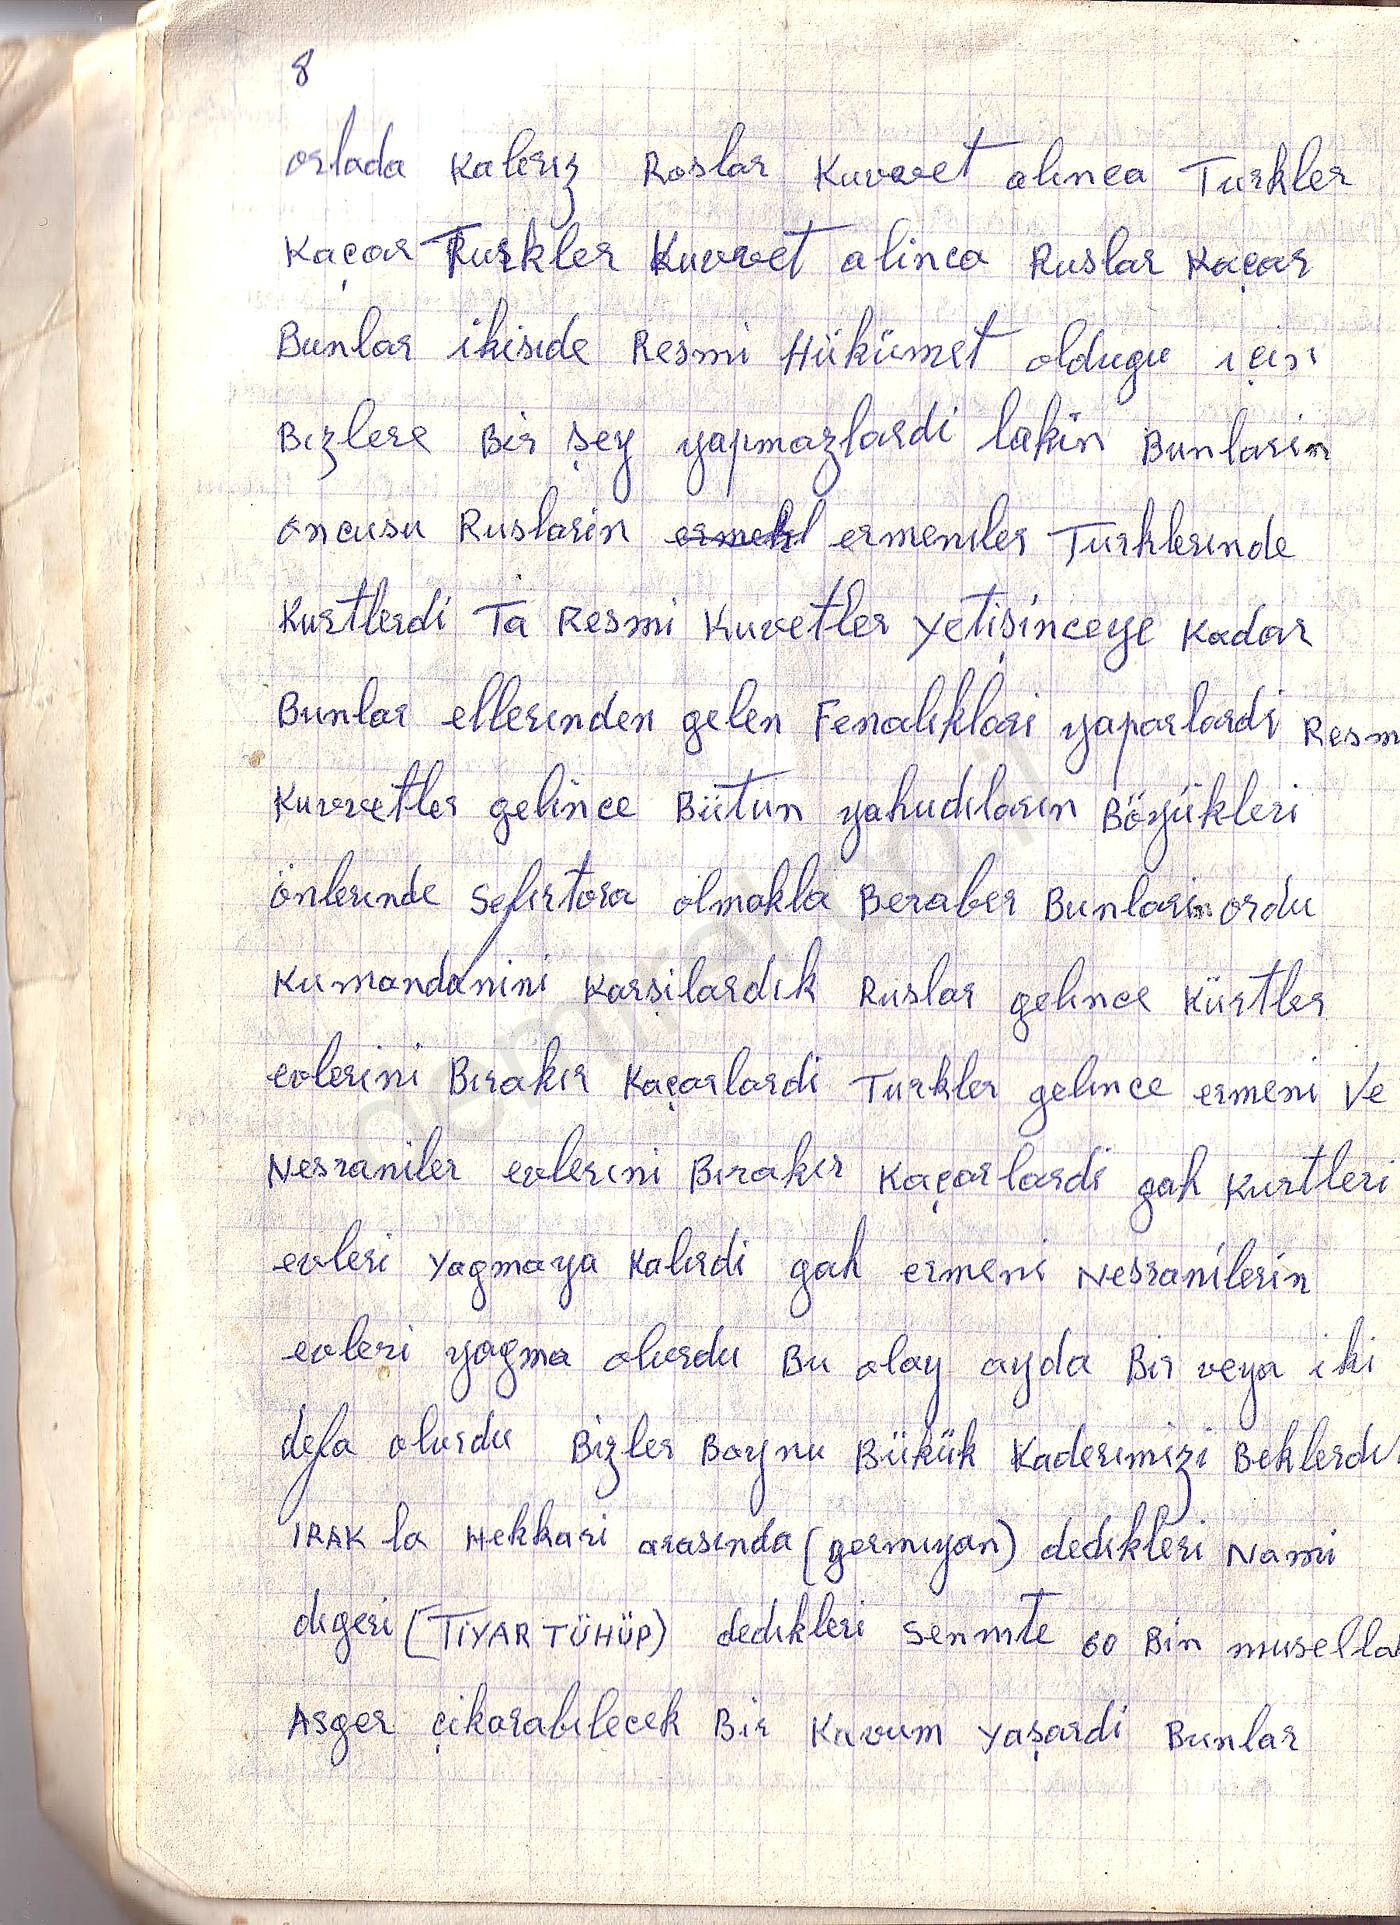 8
ortada kalırız Ruslar Kuvvet alınca Turkler
Kaçar Turkler Kuvvet alinca Ruslar Kaçar
Bunlar ikiside Resmi Hükümet oldugu için
Bızlere Bir şey yapmazlardi lakin Bunlarin
öncusu Ruslarin ermeniler Turklerinde
Kurtlerdi Ta Resmi Kuvetler yetişinceye kadar
Bunlar ellerınden gelen Fenalıklari yaparlardi Resm
Kuvvetler gelince Bütun yahudıların Böyükleri
önlerınde Sefirtora olmakla Beraber Bunlarin ordu
Kumandanini Karşilardık Ruslar gelınce Kürtler
evlerini Bırakır Kaçarlardi Turkler gelınce ermeni Ve
Nesraniler evlerıni Bırakır Kaçarlardi gah Kurtleri
evleri yagmaya kalırdi gah ermeni Nesranilerin
evleri yagma olurdu Bu olay ayda Bir veya iki
defa olurdu Bizler Boynu Bükük Kaderımizi Beklerdı
IRAK la Hekkari arasında (germıyan) dedıkleri Nami
dıgeri (TİYAR TÜHÜP) dedıkleri semıte 60 Bin musella
Asger çikarabılecek Bir Kavum yaşardi Bunlar
demirel.co.il